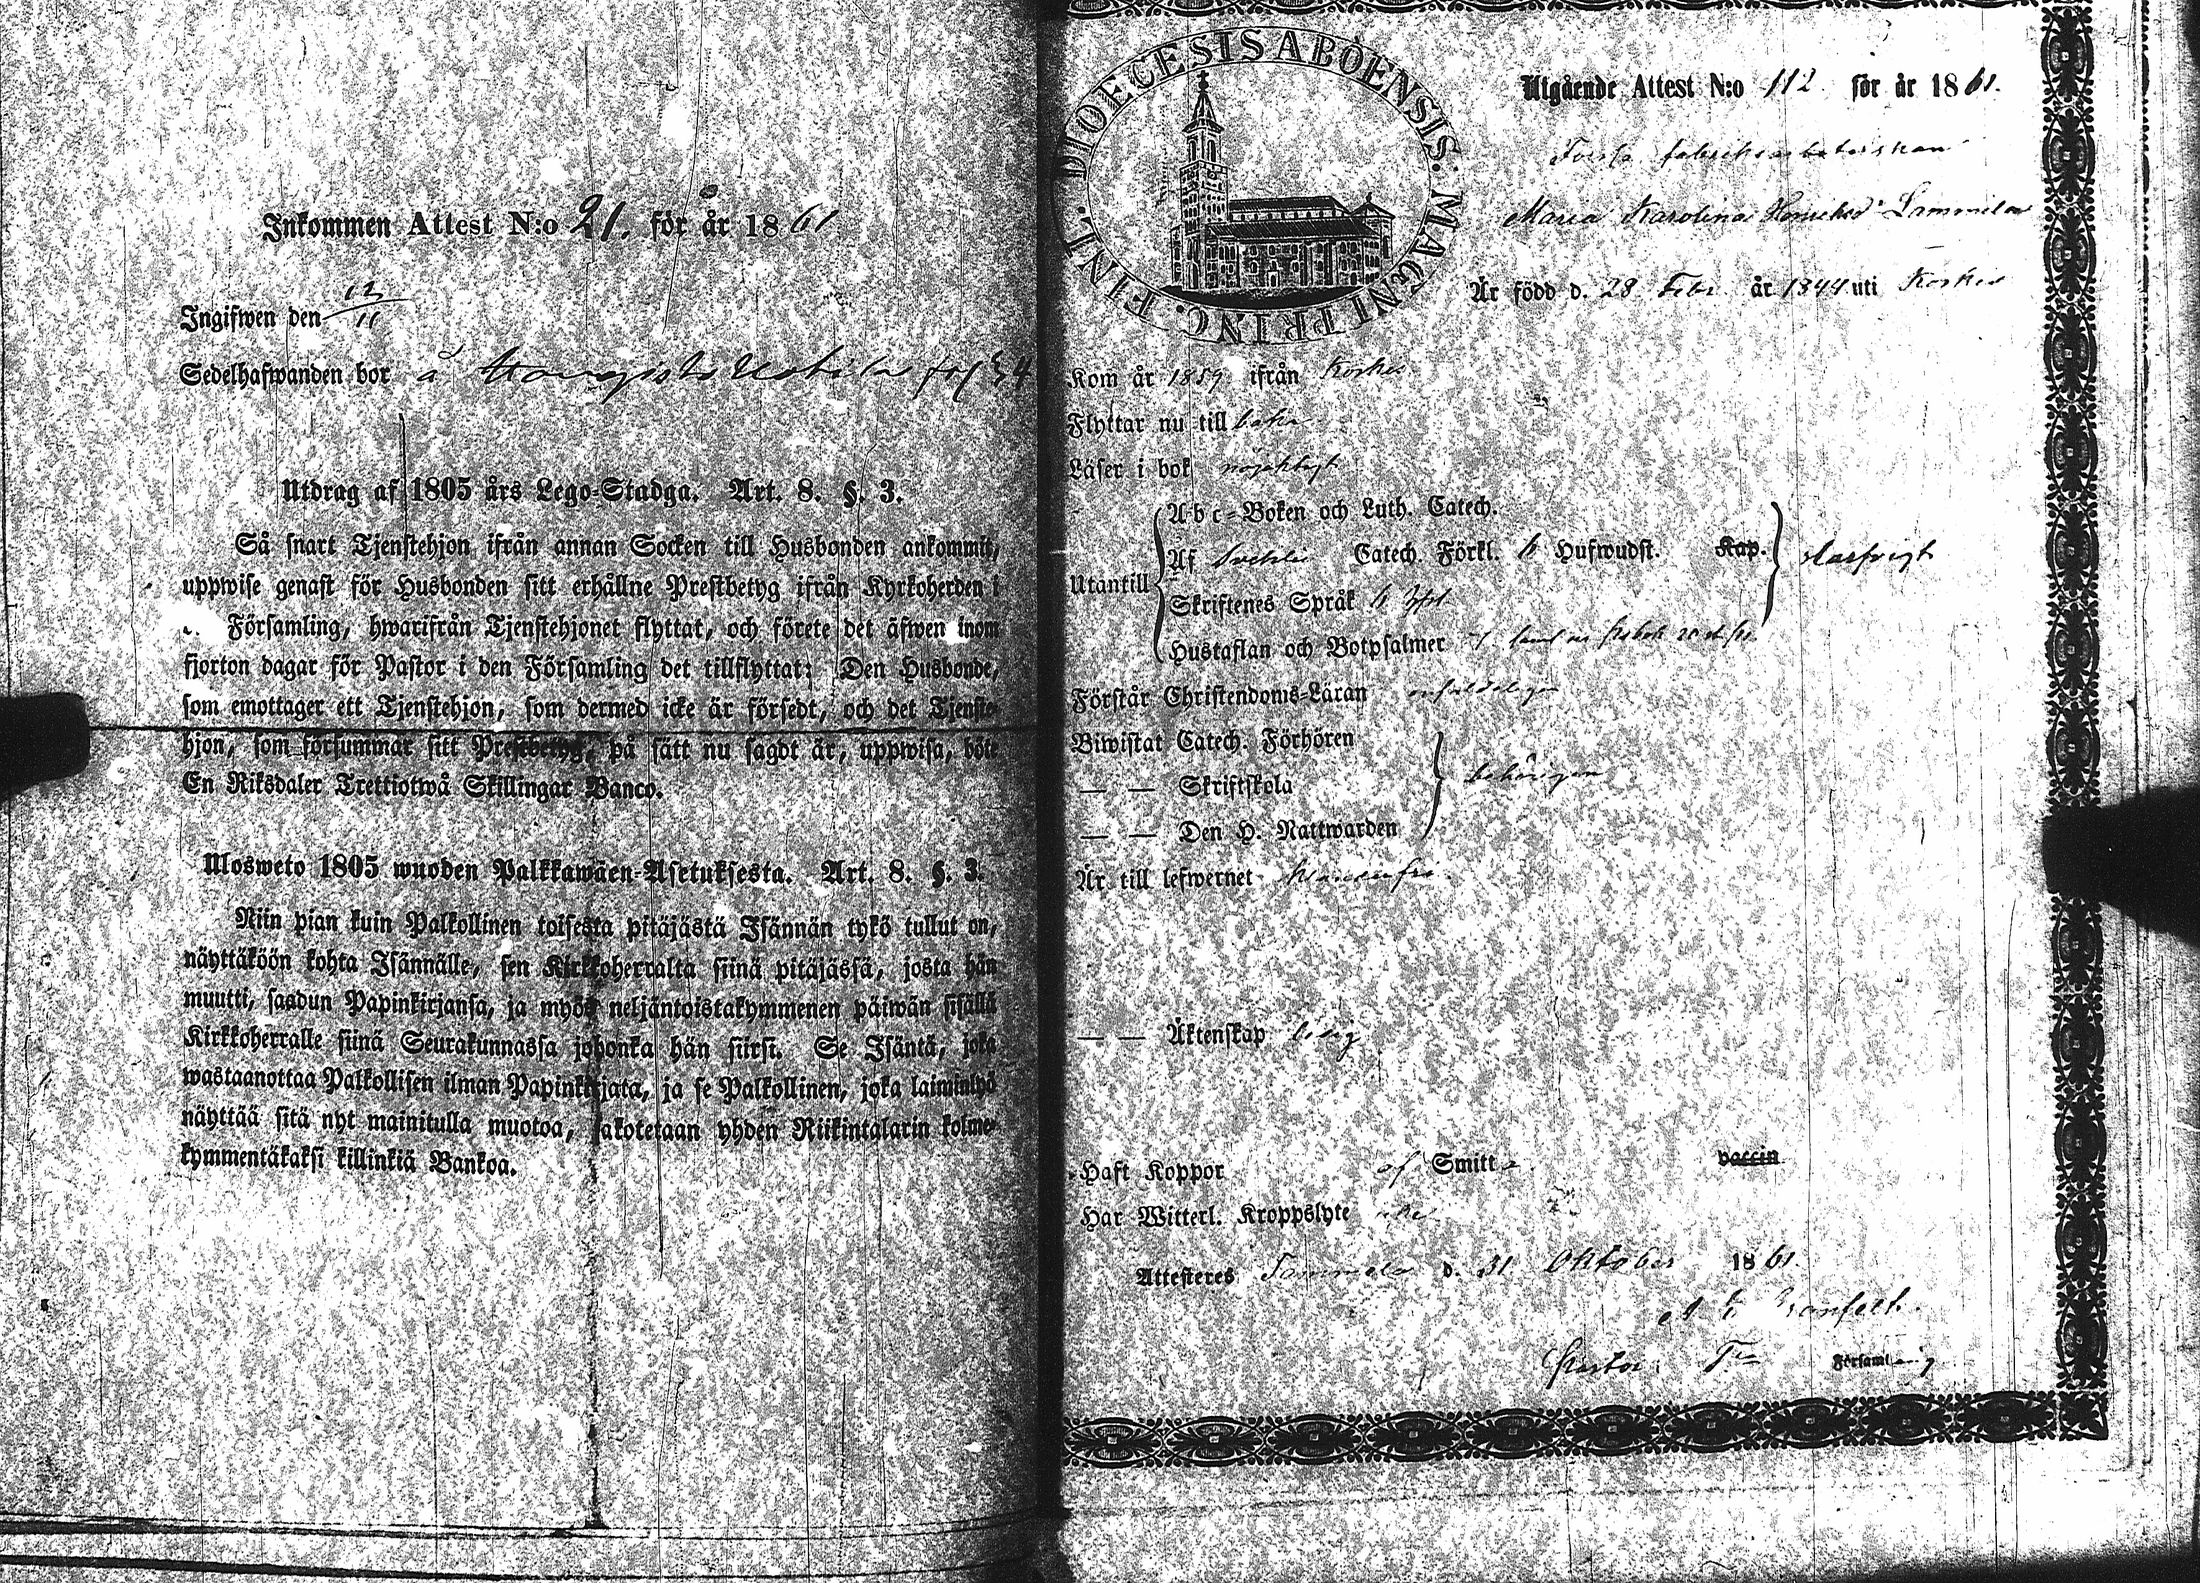 Inkommen Attest N:o 21. för år 1861
Ingifwen den 12/11
Sedelhafwanden bor å
Utdrag af 1805 års Lego-Stadga. Art. 8. §. 3.
Så snart Tjenstehjon ifrån annan Socken till Husbonden ankommit,
uppwise genast för Husbonden sitt erhållne Prestbetyg ifrån Kyrkoherden i
Församling, hwarifrån Tjenstehjonet flyttat, och förete det äfwen inom
fjorton dagar för Pastor i den Församling det tillflyttat; Den Husbonde,
som emottager ett Tjenstehjon, som dermed icke är försedt, och det Tjenste-
hjon, som försummar sitt Prestbetyg, på sätt nu sagdt är, uppwisa, böte
En Riksdaler Trettiotwå Skillingar Banco.
Ulosweto 1805 wuoden Palkkawäen-Asetuksesta. Art. 8. §. 3.
Niin pian kuin Palkollinen toisesta pitäjästä Isännän tykö tullut on,
näyttäköön kohta Isännälle, sen Kirkkoherralta siinä pitäjässä, josta hän
muutti, saadun Papinkirjansa, ja myös neljäntoistakymmenen päiwän sisällä
Kirkkoherralle siinä Seurakunnassa johonka hän siirsi. Se Isäntä, joka
wastaanottaa Palkollisen ilman Papinkirjata, ja se Palkollinen, joka laiminlyö
näyttää sitä nyt mainitulla muotoa, sakotetaan yhden Riikintalarin kolme-
kymmentäkaksi killinkiä Bankoa.
DIOECESIS ABOENSIS. MAGNI PRINC. FINL.
Utgående Attest N:o 112 för år 1861.
Forssa fabriksarbeterskan
Maria Karolina
Är född d. 28 Febr. år 1844 uti Koskis
Kom år 1859 ifrån Koskis
Flyttar nu till baka
Läser i bok nöjaktigt
Utantill
Abc-Boken och Luth. Catech.
Af Svebilii Catech. Förkl. 6 Hufwudst. Kap.
Skriftenes Språk 6
Hustaflan och Botpsalmer
Förstår Christendoms-Läran enfaldeligen
Biwistat Catech. Förhören
— — Skriftskola
behörigen
— — Den H. Nattwarden
Är till lefwernet klanderfri.
— — Äktenskap ledig
Haft Koppor af Smitta. vaccin
Har Witterl. Kroppslyte icke
Attesteres Tammela d. 31 Oktober 1861.
Pastor Församling